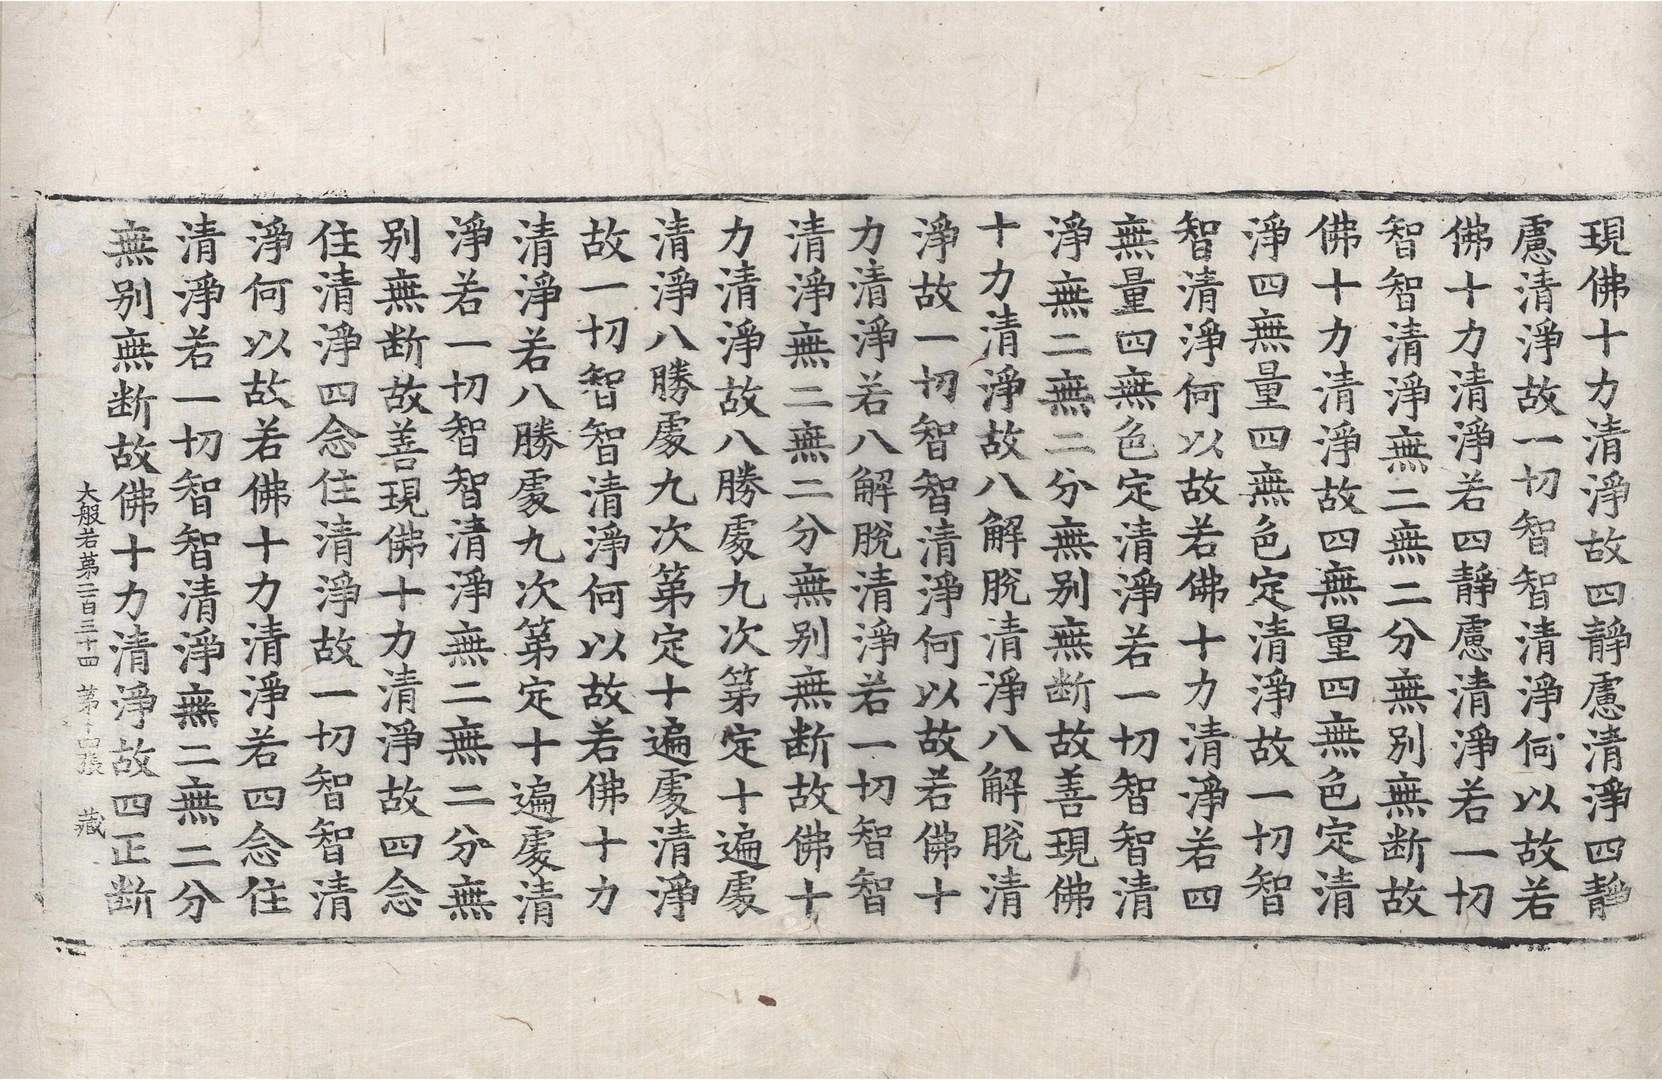 現佛十力清淨故四靜慮清淨四靜
慮清淨故一切智智清淨何以故若
佛十力清淨若四靜慮清淨若一切
智智清淨無二無二分無别無断故
佛十力清淨故四無量四無色定清
淨四無量四無色定清淨故一切智
智清淨何以故若佛十力清淨若四
無量四無色定清淨若一切智智清
淨無二無二分無别無断故善現佛
十力清淨故八解脫清淨八解脫清
淨故一切智智清淨何以故若佛十
力清淨若八解脫清淨若一切智智
清淨無二無二分無别無断故佛十
力清淨故八勝處九次第定十遍處
清淨八勝處九次第定十遍處清淨
故一切智智清淨何以故若佛十力
清淨若八勝處九次第定十遍處清
淨若一切智智清淨無二無二分無
别無断故善現佛十力清淨故四念
住清淨四念住清淨故一切智智清
淨何以故若佛十力清淨若四念住
清淨若一切智智清淨無二無二分
無别無断故佛十力清淨故四正断
大般若第二百三十四 第十四張 藏